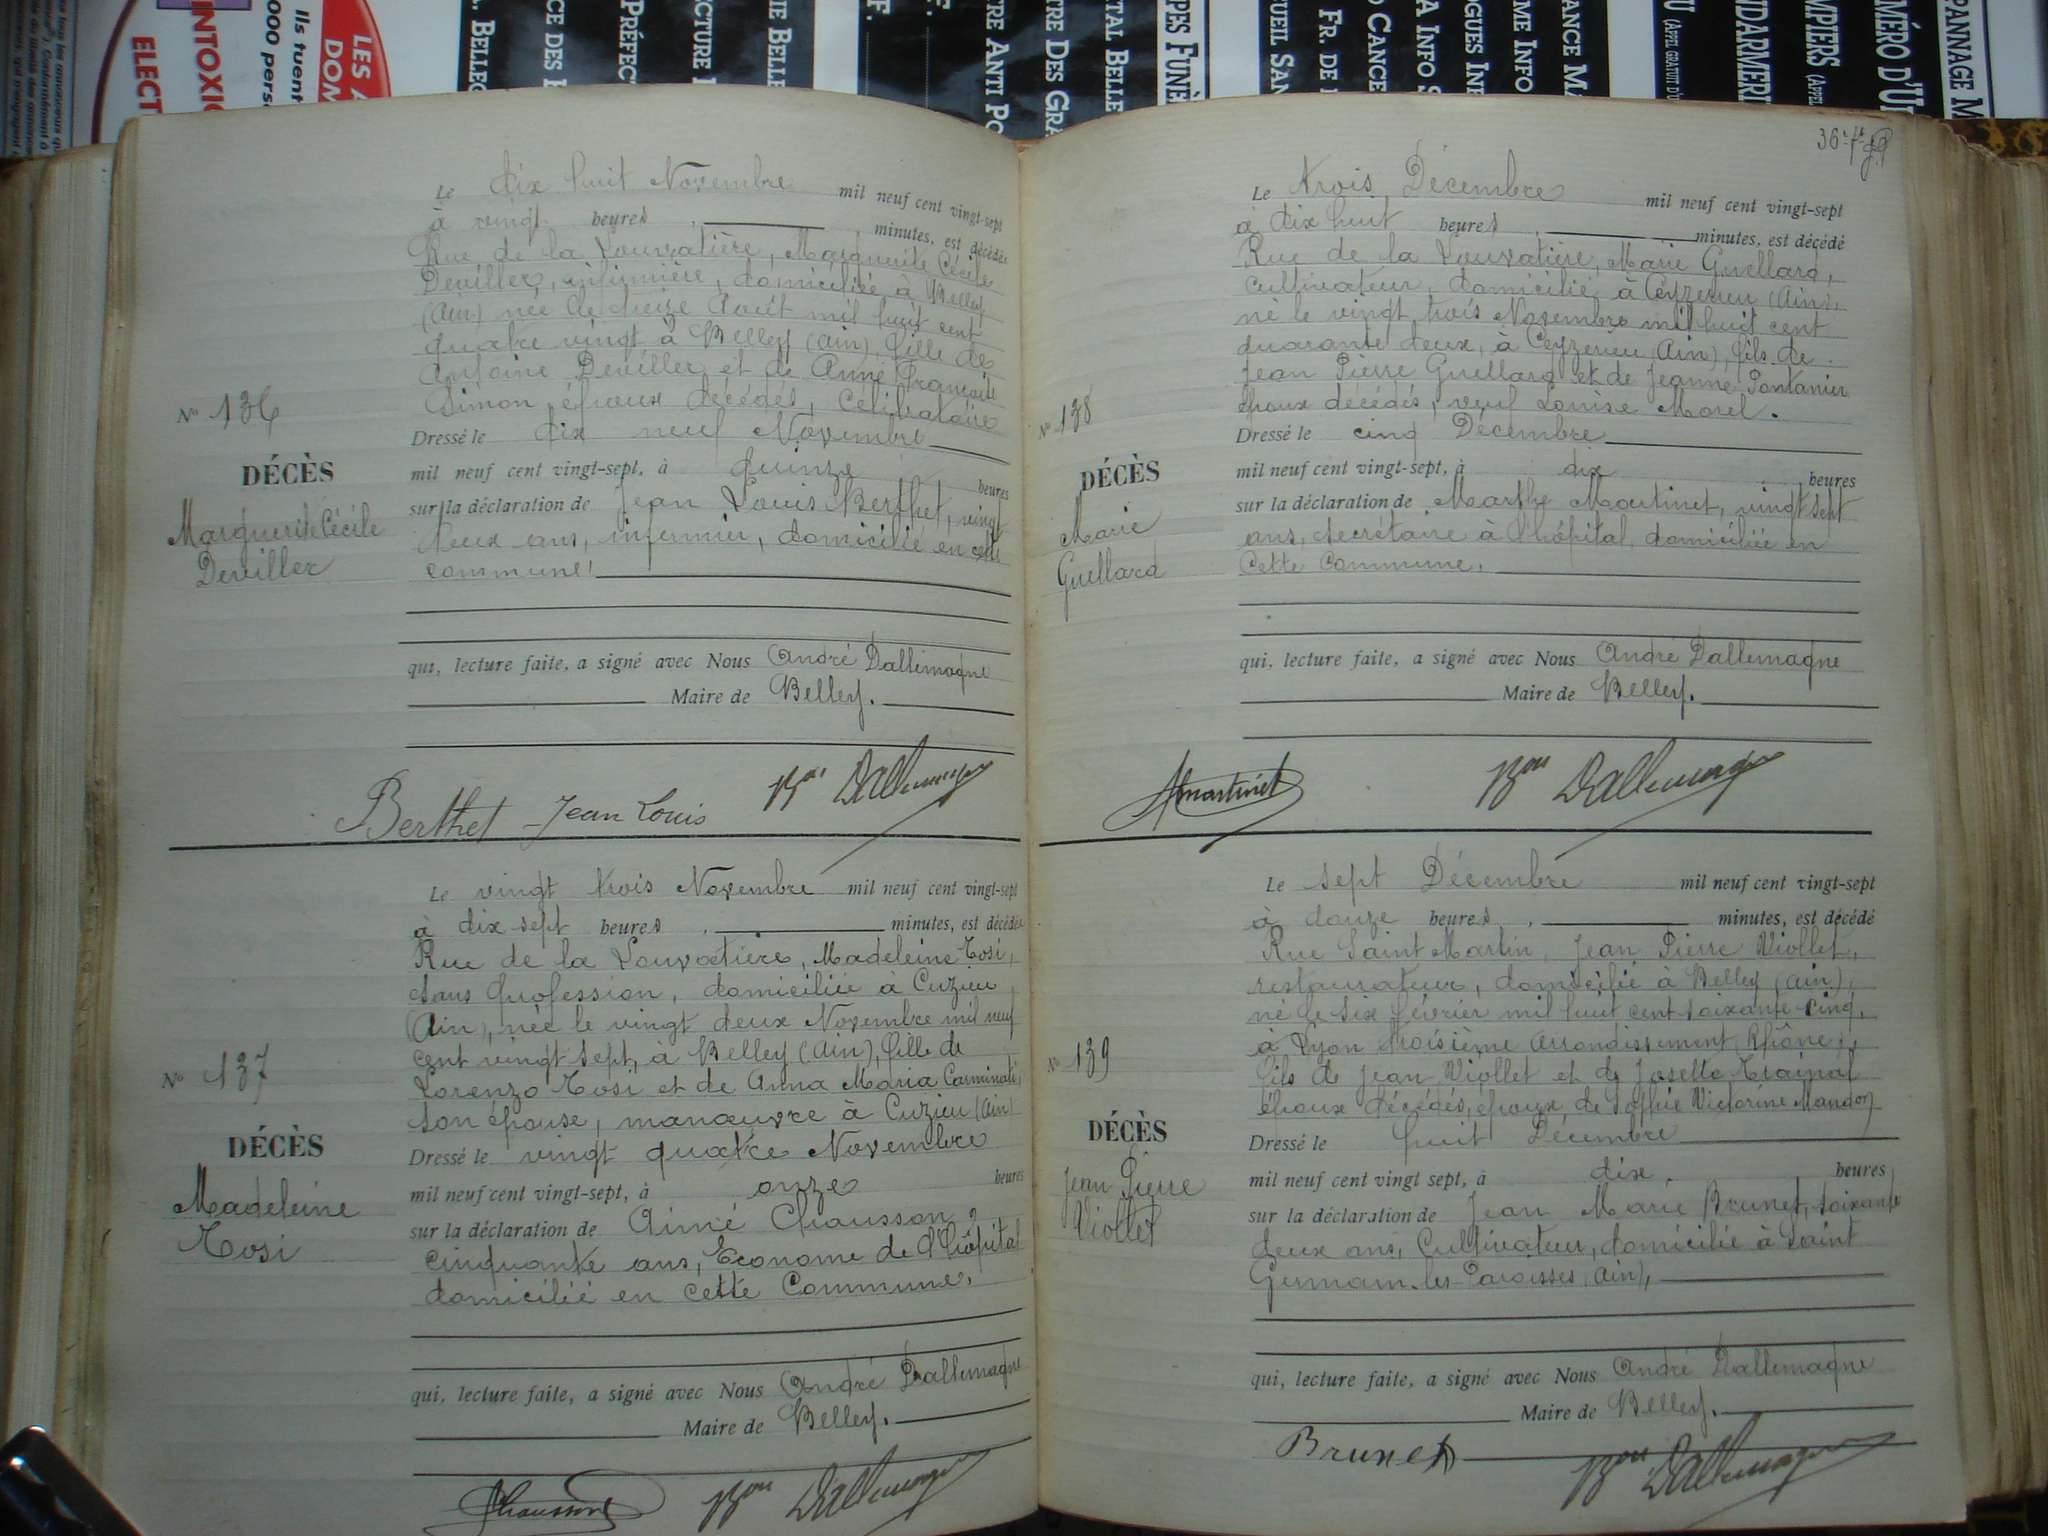 LES A
DOM
Ils tuent
000 perso
INTOXIC
ELECT
. BELLEC
CE DES I
PRÉFEC
CTURE
IE BELLE
F.
F.
RE ANTI PO
TRE DES GRA
TAL BELLE
PES FUNÈ
UEIL SAN
FR. DE
O CANCE
A INFO S
OGUES INF
ME INFO
ANCE MA
U (APPEL GRATUIT D'U
NDARMERI
MPIERS (APPEL
MÉRO D'UR
PANNAGE M
Le dix huit Novembre mil neuf cent vingt-sept
à vingt heures, minutes, est décédée
Rue de la Louvatière, Marguerite Cécile
Deviller, infirmière, domiciliée à Belley
(Ain) née le treize Août mil huit cent
quatre vingt à Belley (Ain), fille de
Antoine Deviller et de Anne Françoise
Simon, époux décédés, Célibataire
Dressé le dix neuf Novembre
mil neuf cent vingt-sept, à quinze heures
sur la déclaration de Jean Louis Berthet, vingt
deux ans, infirmier, domicilié en cette
commune,
qui, lecture faite, a signé avec Nous André Dallemagne
Maire de Belley.
No 136
DÉCÈS
Marguerite Cécile
Deviller
Berthet Jean Louis Bon Dallemagne
Le vingt trois Novembre mil neuf cent vingt-sept
à dix sept heures, minutes, est décédée
Rue de la Louvatière, Madeleine Tosi,
sans profession, domiciliée à Cuzieu
(Ain), née le vingt deux Novembre mil neuf
cent vingt sept, à Belley (Ain), fille de
Lorenzo Tosi et de Anna Maria Carminati
son épouse, manœuvre à Cuzieu (Ain)
Dressé le vingt quatre Novembre
mil neuf cent vingt-sept, à onze heures
sur la déclaration de Aimé Chausson,
cinquante ans, Econome de l'hôpital
domicilié en cette Commune,
qui, lecture faite, a signé avec Nous André Dallemagne
Maire de Belley.
No 137
DÉCÈS
Madeleine
Tosi
Chausson Bon Dallemagne
36
Le trois Décembre mil neuf cent vingt-sept
à dix huit heures, minutes, est décédé
Rue de la Louvatière, Marie Guellard,
cultivateur, domicilié à Ceyzerieu (Ain),
né le vingt trois Novembre mil huit cent
quarante deux, à Ceyzerieu (Ain), fils de
Jean Pierre Guellard et de Jeanne Pantanier
époux décédés, veuf Louise Morel.
Dressé le cinq Décembre
mil neuf cent vingt-sept, à dix heures
sur la déclaration de Marthe Martinet, vingt sept
ans, secrétaire à l'hôpital, domiciliée en
cette Commune,
qui, lecture faite, a signé avec Nous André Dallemagne
Maire de Belley.
No 138
DÉCÈS
Marie
Guellard
Martinet Bon Dallemagne
Le sept Décembre mil neuf cent vingt-sept
à douze heures, minutes, est décédé
Rue Saint Martin, Jean Pierre Viollet,
restaurateur, domicilié à Belley (Ain),
né le six février mil huit cent soixante cinq,
à Lyon troisième arrondissement, Rhône,
fils de Jean Viollet et de Josette
époux décédés, époux de Sophie Victorine
Dressé le huit Décembre
mil neuf cent vingt sept, à dix, heures
sur la déclaration de Jean Marie Brunet, soixante
deux ans, Cultivateur, domicilié à Saint
Germain-les-Paroisses (Ain),
qui, lecture faite, a signé avec Nous André Dallemagne
Maire de Belley.
No 139
DÉCÈS
Jean Pierre
Viollet
Brunet Bon Dallemagne